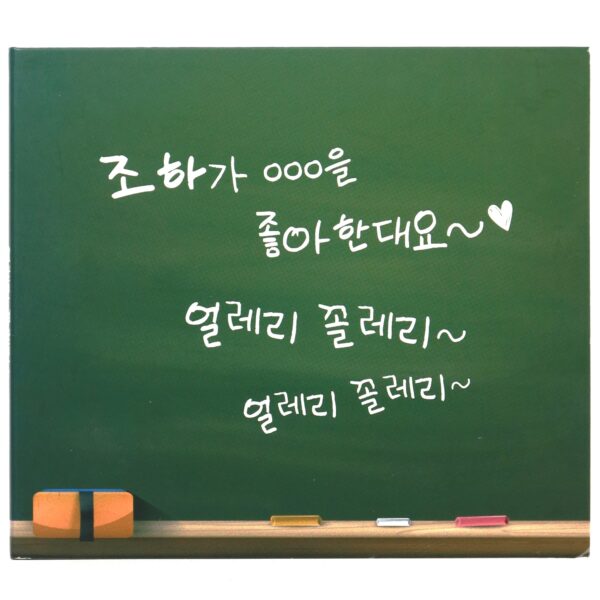 조하가 ooo을
좋아한대요~♥
얼레리 꼴레리~
얼레리 꼴레리~